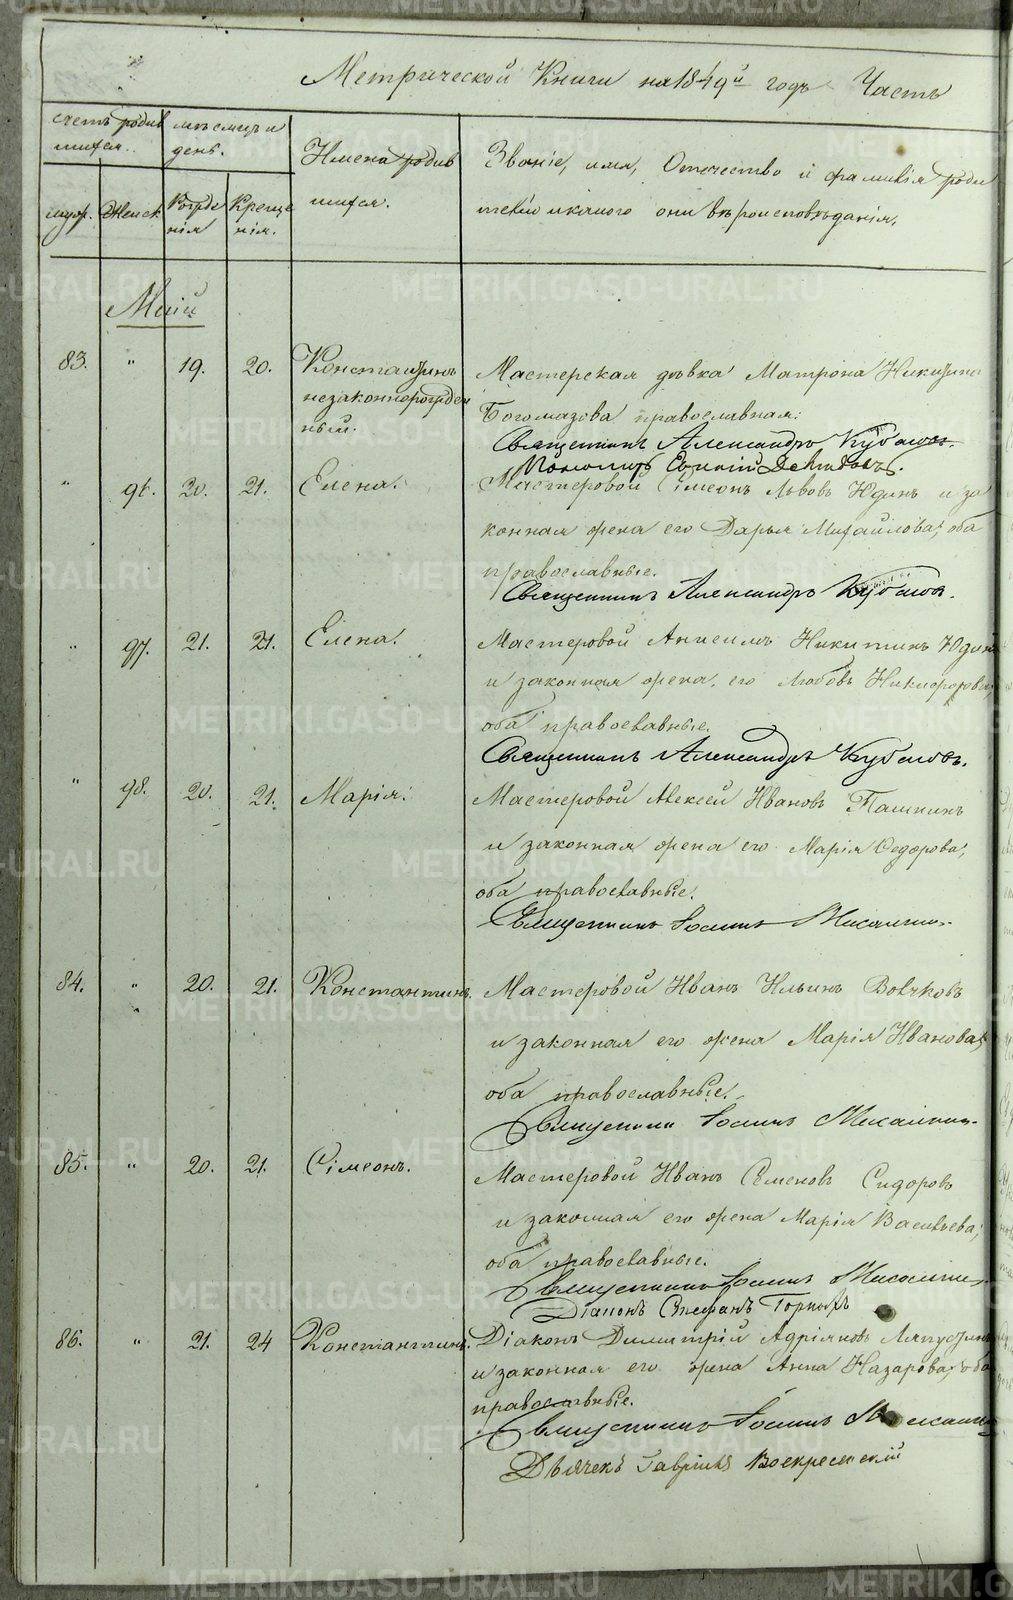 Метрической Книги на 1849й годъ Часть
счетъ родив
шихся.
мѣсяцъ и
день.
Имена родив
шихся.
Званіе, имя, Отчество и фамилія роди
телей и какого они вѣроисповѣданія.
муж.
Женск.
Рожде
нія
Креще
нія.
Маій
83. " 19. 20. Константинъ Мастерская дѣвка Матрона Никитина
незаконнорожден
ный. Богомазова православная.
Священникъ Александръ
Пономарь
" 96. 20. 21. Елена. Мастеровой Сімеонъ Львовъ Юдинъ и за
конная жена его Дарья Михайлова, оба
православные.
Священникъ Александръ
" 97. 21. 21. Елена. Мастеровой Анисимъ Никитинъ Юдинъ
и законная жена его Любовь Никифорова,
оба православные.
Священникъ Александръ
" 98. 20. 21. Марія. Мастеровой Алексей Ивановъ Пашкинъ
и законная жена его Марія Седорова,
оба православные.
Священникъ Іоаннъ
84. " 20. 21. Константинъ. Мастеровой Иванъ Ильинъ Волчковъ
и законная его жена Марія Иванова,
оба православные.
Священникъ Іоаннъ
85. " 20. 21. Сімеонъ. Мастеровой Иванъ Семеновъ Сидоровъ
и законная его жена Марія Васильева,
оба православные.
Священникъ Іоаннъ
Діаконъ Стефанъ Горныхъ
86. " 21. 24 Константинъ. Діаконъ Димитрій Адріяновъ Ляпустинъ
и законная его жена Анна Назарова, оба
православные.
Священникъ Іоаннъ
Дьячекъ Гавріилъ Воскресенскій
METRIKI.GASO-URAL.RU